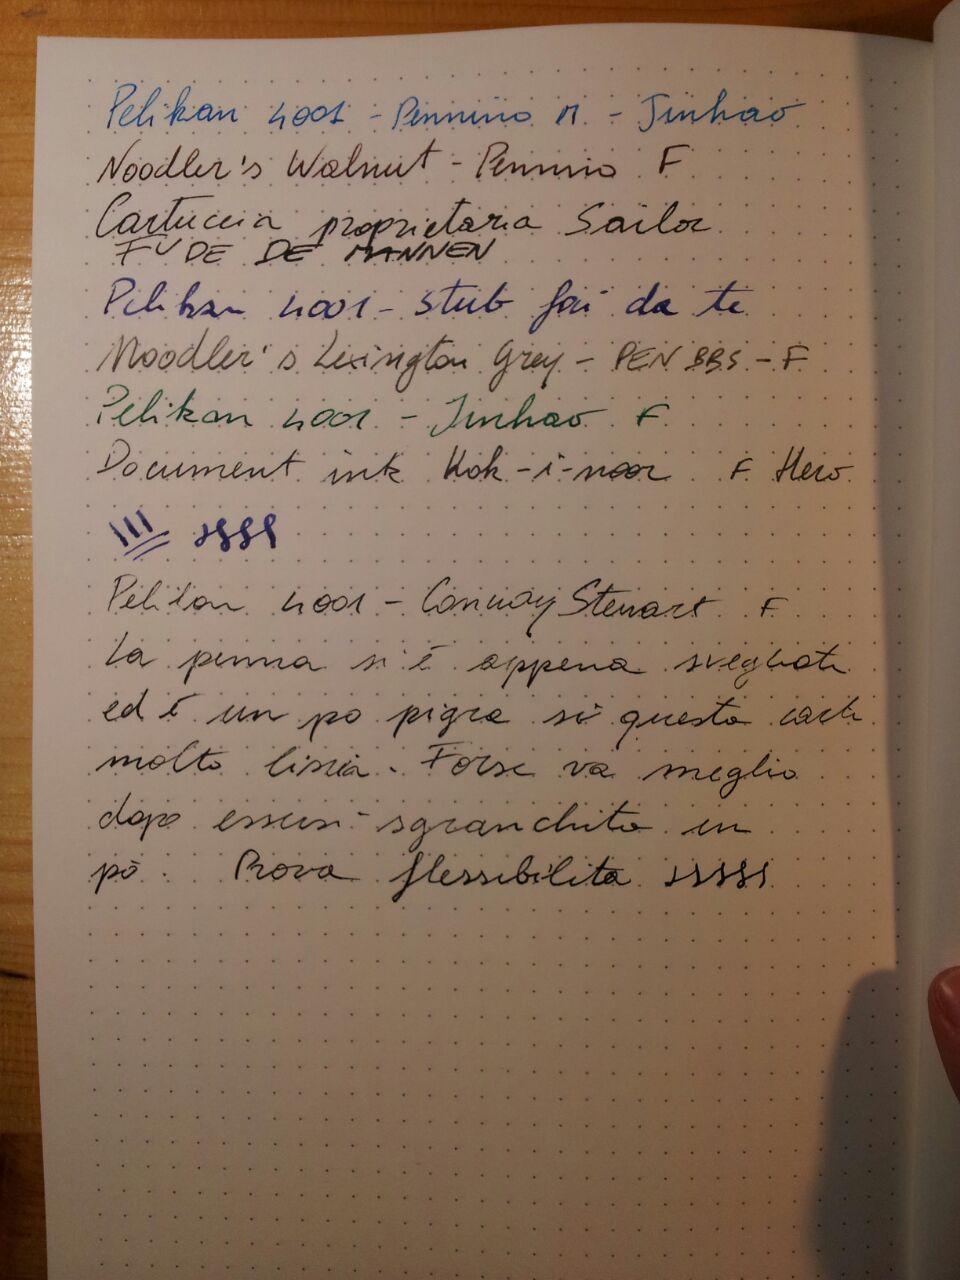 Pelikan 4001 - Pennino M - Jinhao
Noodler's Walnut - Pennino F
Cartuccia proprietaria Sailor
FUDE DE MANNEN
Pelikan 4001 - Stub fai da te
Noodler's Lexington Grey - PEN BBS - F
Pelikan 4001 - Jinhao F
Document ink Koh-i-noor F Hero
Pelikan 4001 - Conway Stewart F
La penna si è appena svegliata
ed è un po pigra sù questa carta
molto liscia. Forse va meglio
dopo essersi sgranchita un
pò. Prova flessibilita